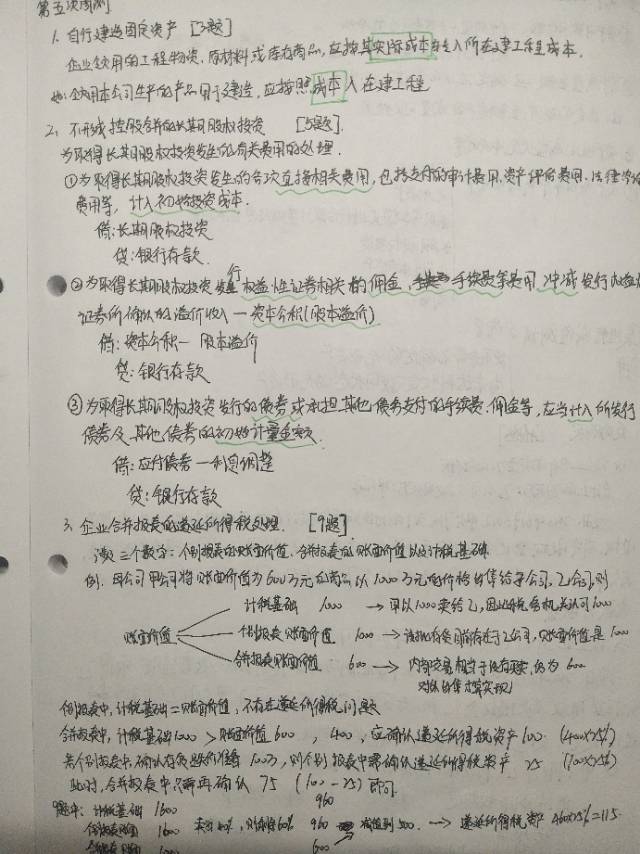 第五次周测
1. 自行建造固定资产 [3题]
企业领用的工程物资、原材料或库存商品,应按其实际成本转入所在建工程成本.
领用本公司生产的产品用于建造,应按照成本入在建工程
2. 不形成控股合并的长期股权投资 [5题].
为取得长期股权投资发生的有关费用的处理.
①为取得长期股权投资发生的各项直接相关费用,包括支付的审计费用、资产评估费用、法律
费用等,计入初始投资成本.
借:长期股权投资
贷:银行存款.
②为取得长期股权投资发行权益性证券相关的佣金、手续费等费用,冲减发行权益
证券所确认的溢价收入—资本公积(股本溢价)
借:资本公积—股本溢价
贷:银行存款
③为取得长期股权投资发行的债券或承担其他债务支付的手续费、佣金等,应当计入所发行
债券及其他债务的初始计量金额.
借:应付债券—利息调整
贷:银行存款
3. 企业合并报表的递延所得税处理. [9题]
三个数字:个别报表的账面价值、合并报表的账面价值以及计税基础
例. 母公司甲公司将账面价值为600万元的商品以1000万元的价格出售给子公司,乙公司,则
计税基础 1000 → 甲以1000卖给乙,因此税务机关认可1000
账面价值
个别报表账面价值 1000 → 该批存货目前存在于乙公司,账面价值是1000
合并报表账面价值 600 → 内部交易相当于没有卖,仍为600
个别报表中,计税基础=账面价值,不存在递延所得税问题
合并报表中,计税基础1000>账面价值600,400,应确认递延所得税资产100 (400×25%)
若个别报表中确认存货跌价准备100万,则个别报表中需确认递延所得税资产 25 (100×25%)
此时,合并报表中只需再确认 75 (100-25) 即可.
960
9题中:计税基础 1600
个别报表账面 1600 卖出40%,剩60% 960 减值到500. → 递延所得税资产 460×25%=115.
600